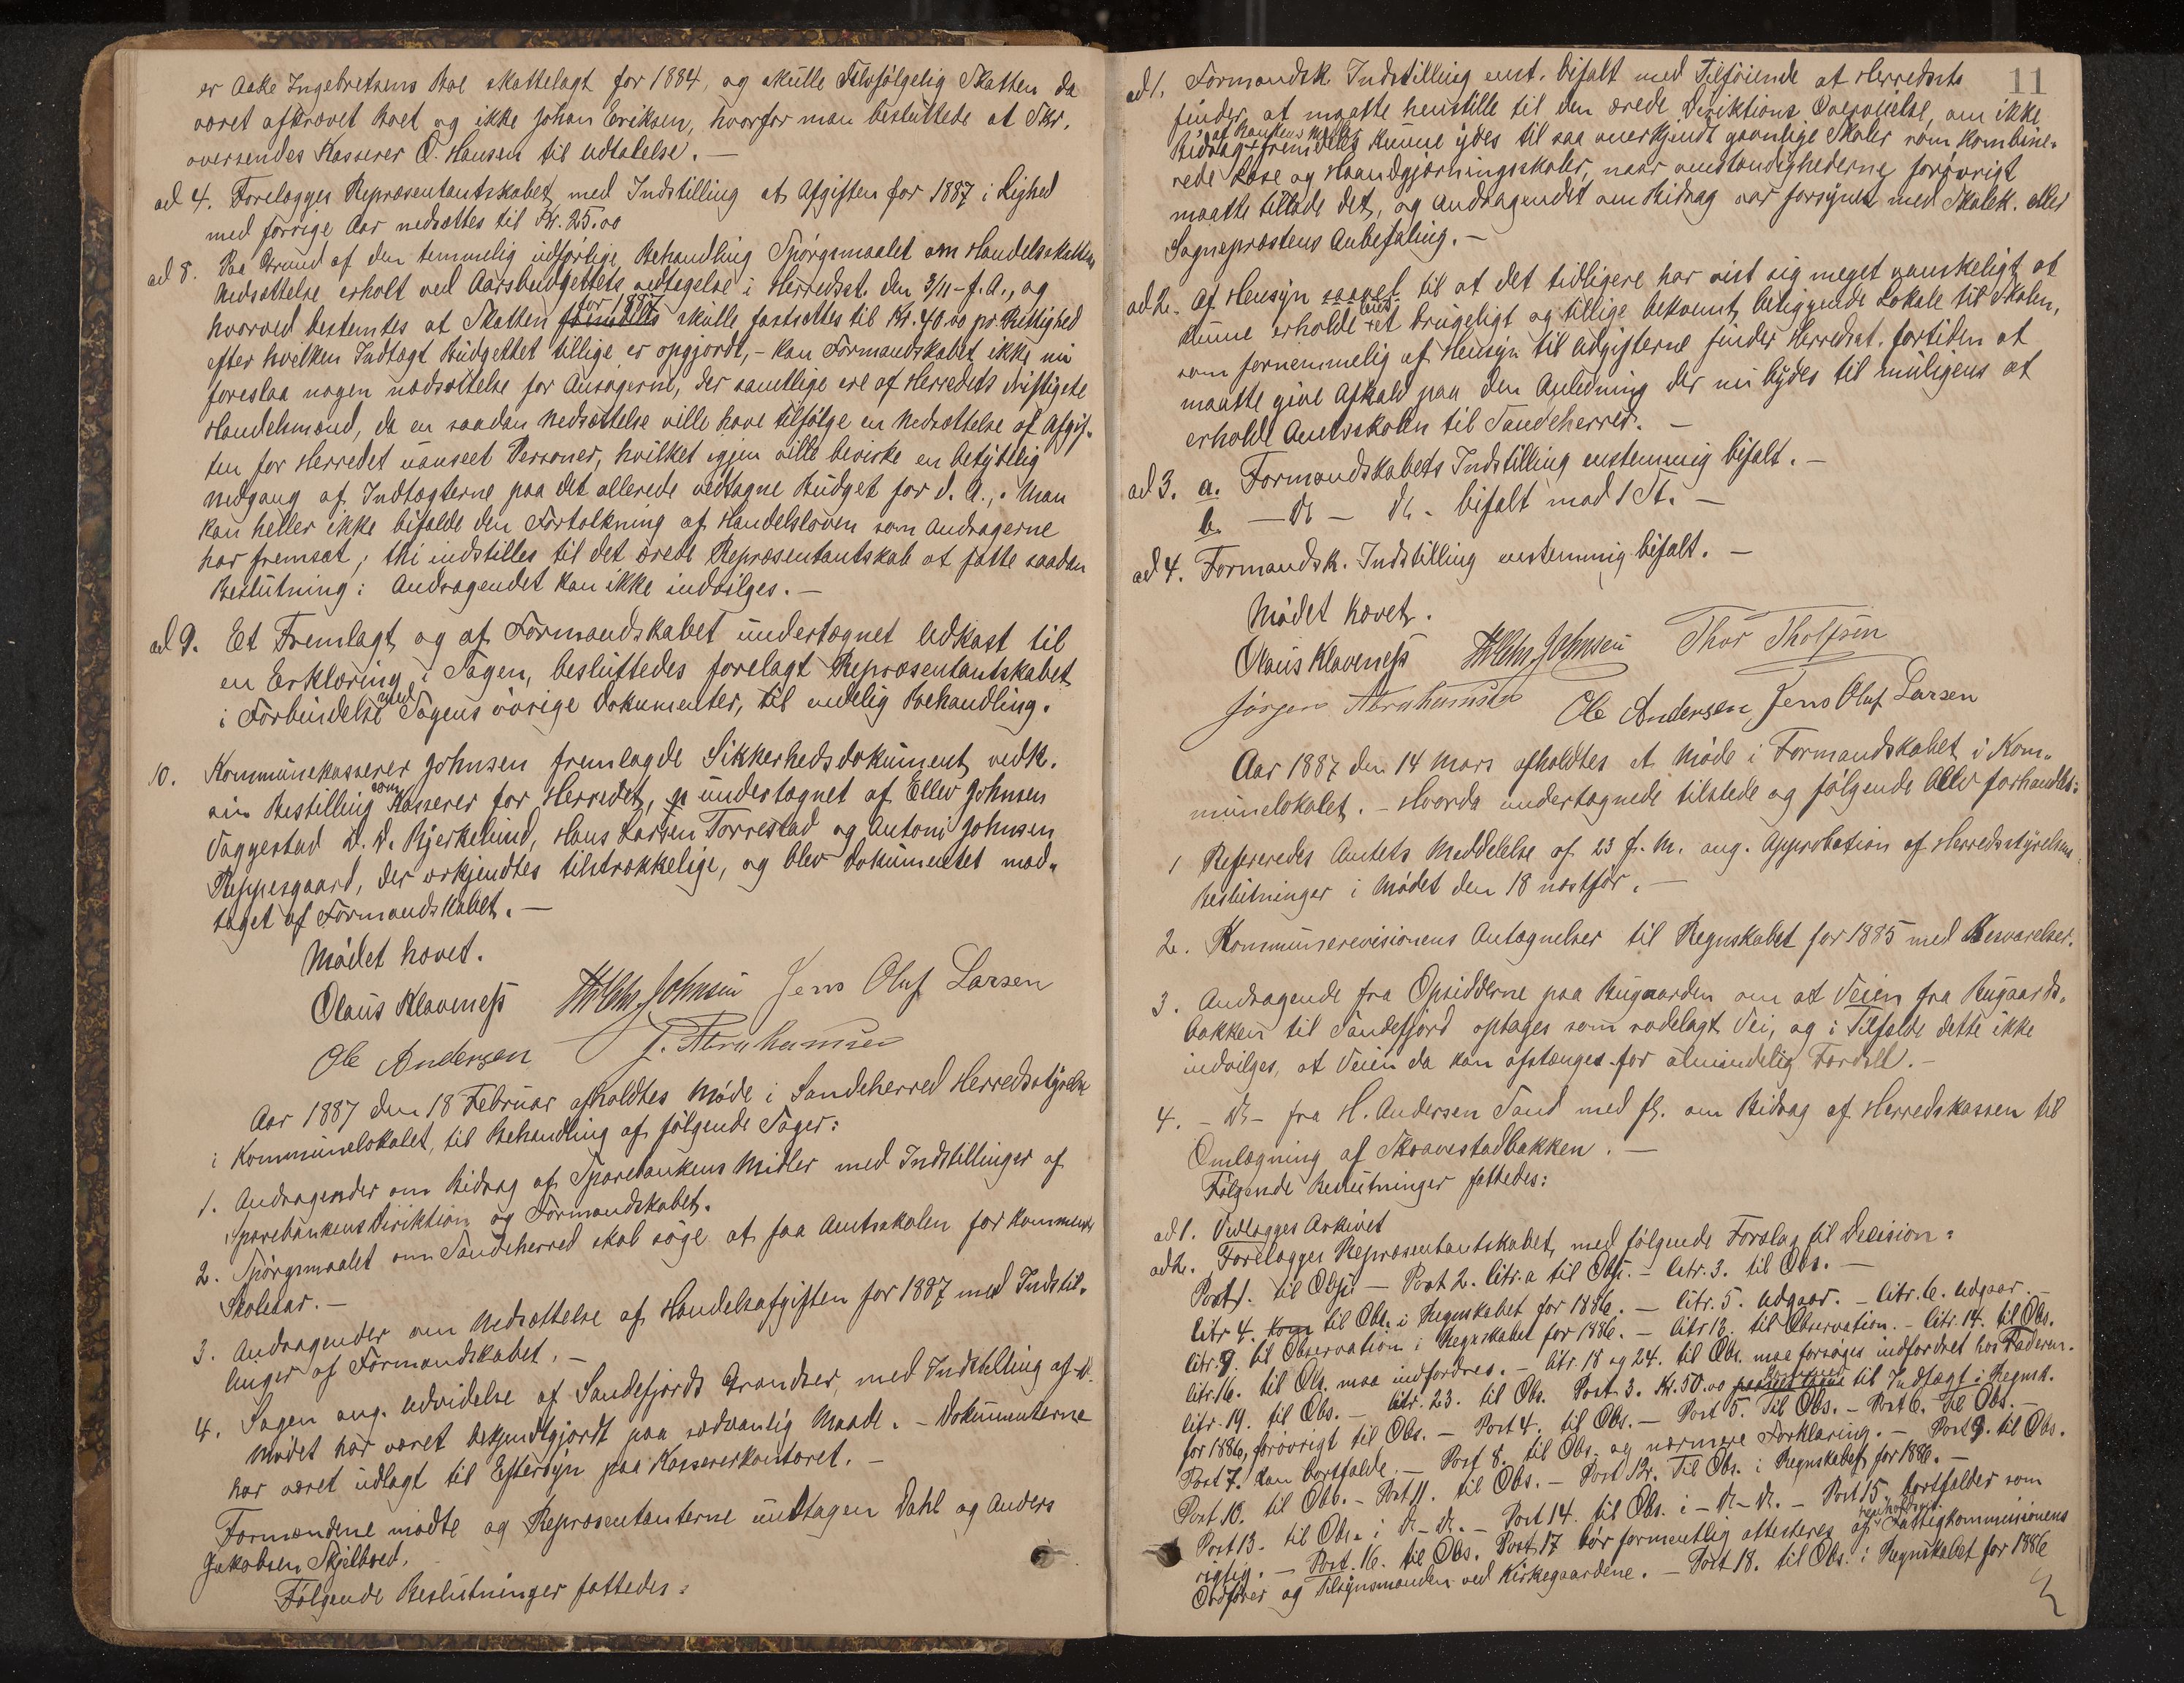 er Aake Ingebretsens Boe skattelagt for 1884, og skulle selvfølgelig Skatten da
været afkrævet Boet og ikke Johan Eriksen, hvorfor man besluttede at Skr.
oversendes Kasserer O. Hansen til Udtalelse. —
ad 4. Forelægges Repræsentantskabet med Indstilling at Afgiften for 1887 i Lighed
med forrige Aar nedsættes til Kr. 25.00
ad 8. Paa Grund af den temmelig udførlige Behandling Spørgsmaalet om Handelsskattens
Nedsættelse erholt ved Aarsbudgettets vedtagelse i Herredsst. den 3/11 f. A., og
for 1887
hvorved bestemtes at Skatten fremdeles skulle fastsættes til Kr. 40.00 pr. Rettighed
efter hvilken Indtægt Budgettet tillige er opgjordt, – kan Formandskabet ikke nu
foreslaa nogen nedsættelse for Ansøgerne, der samtlige ere af Herredets driftigste
Handelsmænd, da en saadan Nedsættelse ville have tilfølge en Nedsættelse af Afgif-
ten for Herredet uanseet Personer, hvilket igjen ville bevirke en betydelig
Nedgang af Indtægterne paa det allerede vedtagne Budget for d. A., Man
kan heller ikke bifalde den Fortolkning af Handelsloven som Andragerne
har fremsat; thi indstilles til det ærede Repræsentantskab at fatte saadan
Beslutning: Andragendet kan ikke indvilges. —
ad 9. Et Fremlagt og af Formandskabet undertegnet Udkast til
en Erklæring i Sagen, besluttedes forelagt Repræsentantskabet
med
i Forbindelse Sagens øvrige Dokumenter, til endelig Behandling.
10. Kommunekasserer Johnsen fremlagde Sikkerhedsdokument vedk.
som
sin Bestilling Kasserer for Herredet, undertegnet af Ellev Johnsen
Vaggestad D. D. Bjerkelund, Hans Larsen Torrestad og Antoni Johnsen
Reppesgaard, der erkjendtes tilstrækkelige, og blev Dokumentet mod-
taget af Formandskabet. —
Mødet hævet.
Olaus Klaveness Johnsen Jens Oluf Larsen
Ole Andersen J. Abrahamsen
Aar 1887 den 18 Februar afholdtes Møde i Sandeherred Herredsstyrelse
i Kommunelokalet, til Behandling af følgende Sager:
1. Andragender om Bidrag af Sparebankens Midler med Indstillinger af
Sparebankens Direktion og Formandskabet.
2. Spørgsmaalet om Sandeherred skal søge at faa Amtsskolen for kommende
Skoleaar. —
3. Andragender om Nedsættelse af Handelsafgiften for 1887 med Indstil-
linger af Formandskabet. —
4. Sagen ang. Udvidelse af Sandefjords Grændser, med Indstilling af D.
Mødet har været bekjendtgjordt paa sædvanlig Maade. – Dokumenterne
har været udlagt til Eftersyn paa Kassererkontoret. —
Formændene mødte og Repræsentanterne undtagen Dahl og Anders
Jakobsen Skjelbred.
Følgende Beslutninger fattedes:
11
ad 1. Formandsk. Indstilling enst. bifalt med Tilføiende at Herredsst.
finder at maatte henstille til den ærede Direktions Overveielse, om ikke
af Bankens Midler
Bidrag fremdeles kunne ydes til saa anerkjendt gavnlige Skoler som kombine-
rede Læse og Haandgjærningsskoler, naar omstændighederne forøvrigt
maatte tillade det, og Andragendet om Bidrag var forsynet med Skolek. eller
Sognepræstens Anbefaling. —
ad 2. Af Hensyn saavel til at det tidligere har vist sig meget vanskeligt at
kunne erholde et brugeligt og tillige bekvemt beliggende Lokale til Skolen,
som fornemmelig af Hensyn til Udgifterne finder Herredsst. fortiden at
maatte give Afkald paa den Anledning der nu bydes til muligens at
erholde Amtsskolen til Sandeherred. —
ad 3. a. Formandskabets Indstilling enstemmig bifalt. —
b. — Do — Do – bifalt mod 1 St. —
ad 4. Formandsk. Indstilling enstemmig bifalt. —
Mødet hævet.
Olaus Klaveness Johnsen Thor Tholfsen
Jørgen Abrahamsen Ole Andersen Jens Oluf Larsen
Aar 1887 den 14 Mars afholdtes et Møde i Formandskabet i Kom-
munelokalet. – Hvorda undertegnede tilstede og følgende blev forhandlet:
1 Refereredes Amtets Meddelelse af 23 f. M. ang. Approbation af Herredsstyrelsens
Beslutninger i Mødet den 18 næstfør. —
2. Kommunerevisionens Antegnelser til Regnskabet for 1885 med Besvarelser.
3. Andragende fra Opsidderne paa Bugaarden om at Veien fra Bugaards-
bakken til Sandefjord optages som rodelagt Vei, og i Tilfælde dette ikke
indvilges, at Veien da kan afstænges for almindelig Færdsel. —
4. – Do – fra H. Andersen Sand med fl. om Bidrag af Herredskassen til
Omlægning af Skravestadbakken. —
Følgende Beslutninger fattedes:
ad 1. Vedlægges Arkivet
ad 2. Forelægges Repræsentantskabet, med følgende Forslag til Decision:
Post 1. til Obs. — Post 2. litr. a til Obs. — litr. 3. til Obs. —
litr 4. til Obs. i Regnskabet for 1886. — litr. 5. udgaar. – litr. 6. udgaar. —
litr. 9. til Observation i Regnskabet for 1886. — litr 13. til Observation. – litr. 14. til Obs.
litr 16. til Obs. maa indfordres. – litr. 18 og 24. til Obs. maa forsøges indfordret hos
litr. 19. til Obs. — litr. 23. til Obs. Post 3. Kr. 50.00 til Indtægt i Regnsk.
for 1886, forøvrigt til Obs. — Post 4. til Obs. — Post 5. Til Obs. — Post 6. til Obs. —
Post 7. kan bortfalde. — Post 8. til Obs. og nærmere Forklaring. — Post 9. til Obs.
Post 10. til Obs. – Post 11. til Obs. – Post 12. Til Obs. i Regnskabet for 1886. —
Post 13. til Obs. i Do – Do. — Post 14. til Obs. i – Do – Do. — Post 15 bortfalder som
rigtig. — Post. 16. til Obs. Post 17 bør formentlig attesteres af Fattigkommissionens
Ordfører og Tilsynsmanden ved Kirkegaardene. — Post 18. til Obs. i Regnskabet for 1886